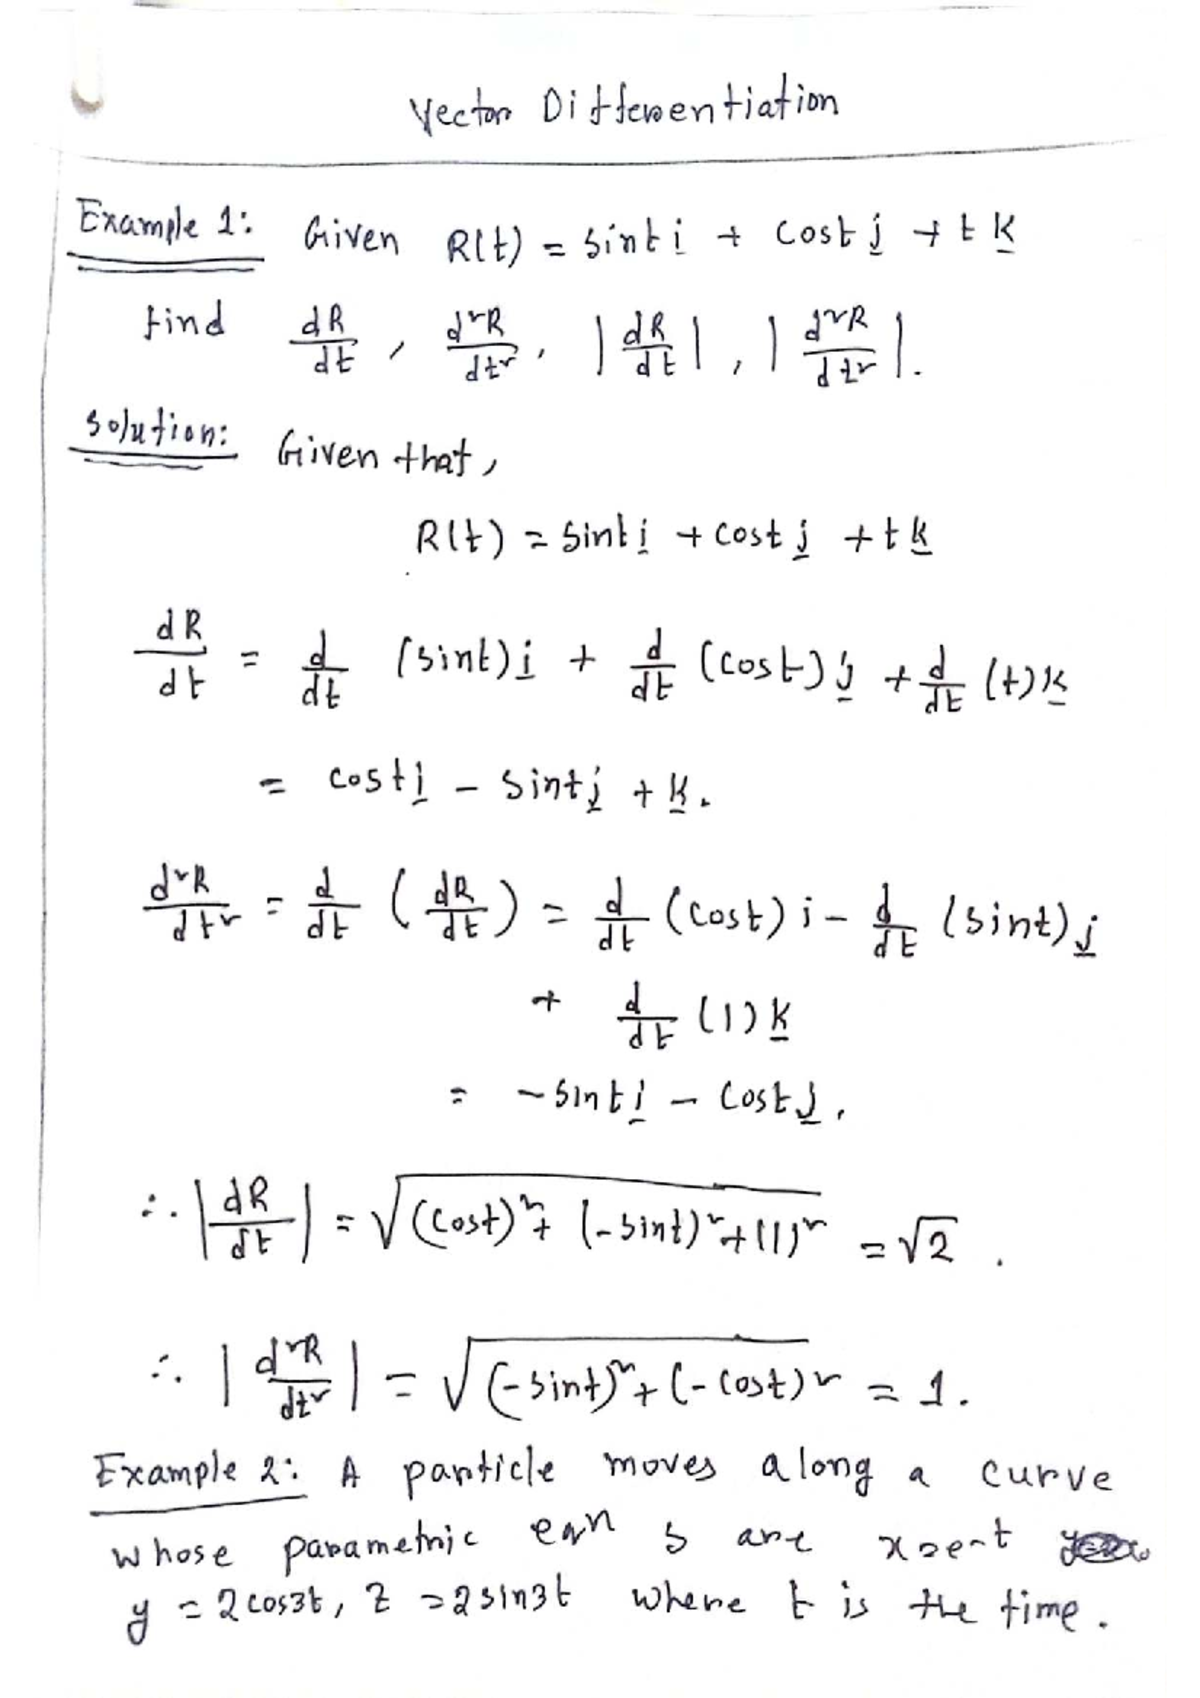 Vector Differentiation
Example 1: Given R(t) = sint i + cost j + t k
find dR/dt , d²R/dt² , |dR/dt| , |d²R/dt²|.
Solution: Given that,
R(t) = sint i + cost j + t k
dR/dt = d/dt (sint) i + d/dt (cost) j + d/dt (t) k
= cost i - sint j + k.
d²R/dt² = d/dt (dR/dt) = d/dt (cost) i - d/dt (sint) j
+ d/dt (1) k
= -sint i - cost j.
∴ |dR/dt| = √((cost)² + (-sint)² + (1)²) = √2 .
∴ |d²R/dt²| = √((-sint)² + (-cost)²) = 1.
Example 2: A particle moves along a curve
whose parametric eqn s are x = e^-t
y = 2cos3t, z = 2sin3t where t is the time.